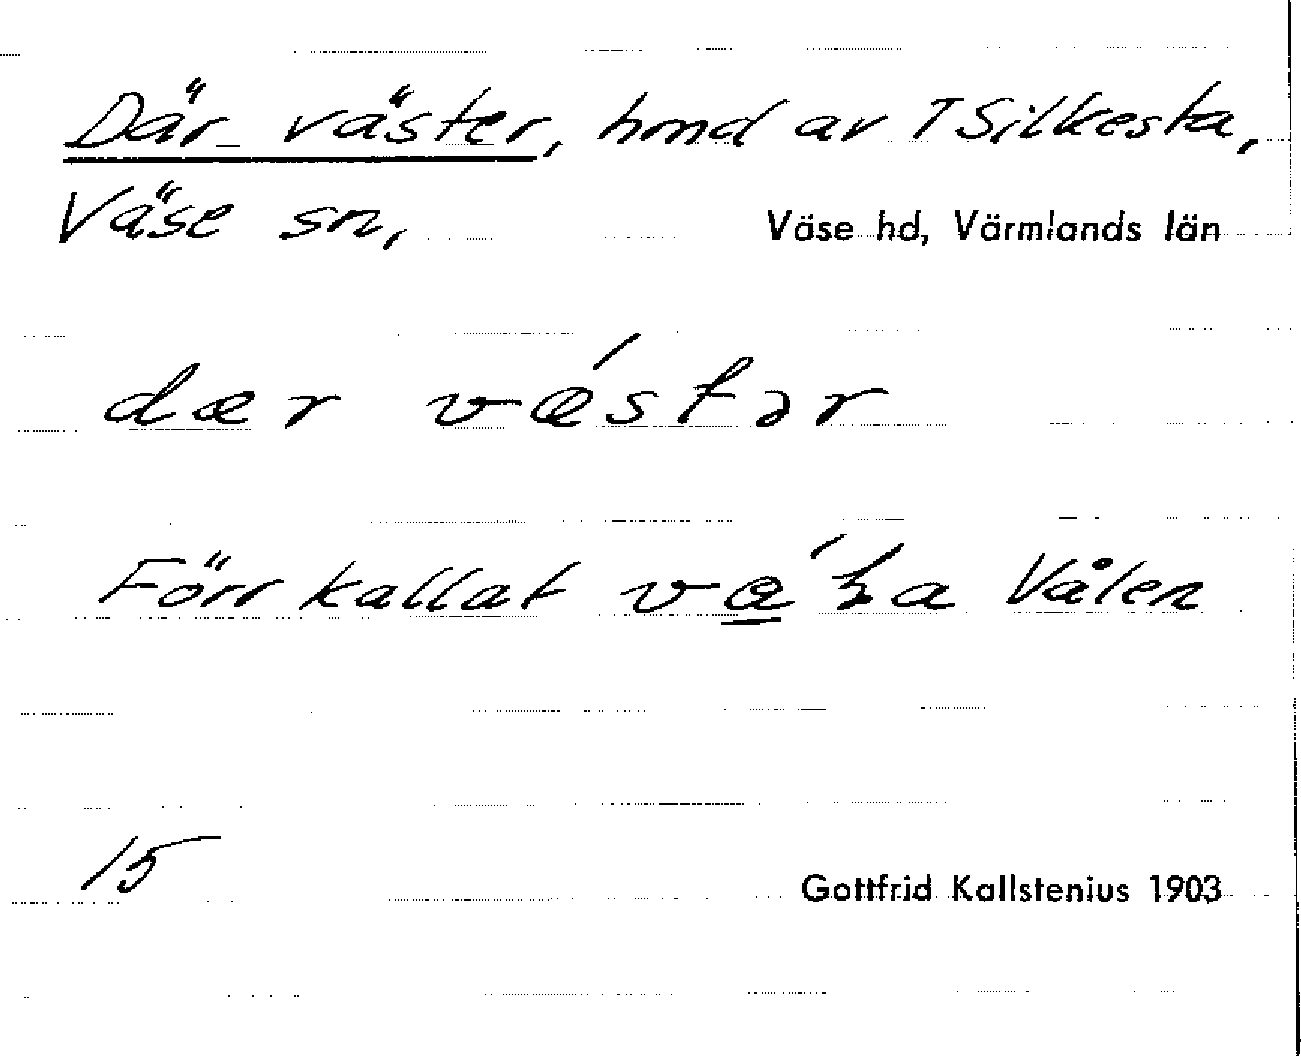 Där väster, hmd av TSilkesta,
Väse sn, Väse hd, Värmlands län
dær væ´stər
Förr kallat Vålen
15
Gottfrid Kallstenius 1903